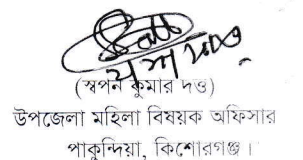 (স্বপন কুমার দত্ত)
উপজেলা মহিলা বিষয়ক অফিসার
পাকুন্দিয়া, কিশোরগঞ্জ।